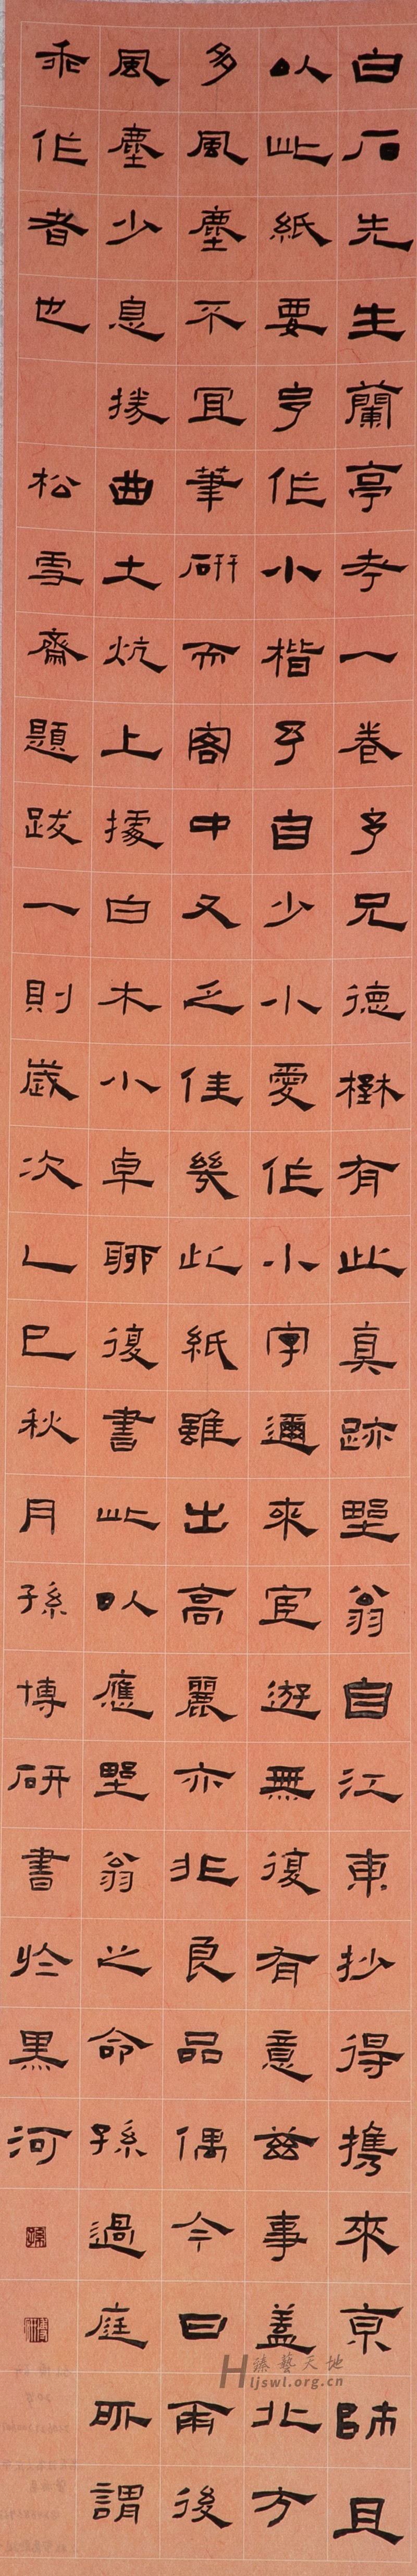 白石先生蘭亭考一卷予兄德樹有此真跡野翁自江東抄得攜來京師且
以此紙要予作小楷予自少小愛作小字邇來宦遊無復有意茲事蓋北方
多風塵不宜筆研而客中又乏佳幾此紙雖出高麗亦非良品偶今日雨後
風塵少息曲土炕上據白木小卓聊復書此以應野翁之命孫過庭所謂
乖作者也 松雪齋題跋一則歲次乙巳秋月孫博研書於黑河
臻藝天地
Hljswl.org.cn